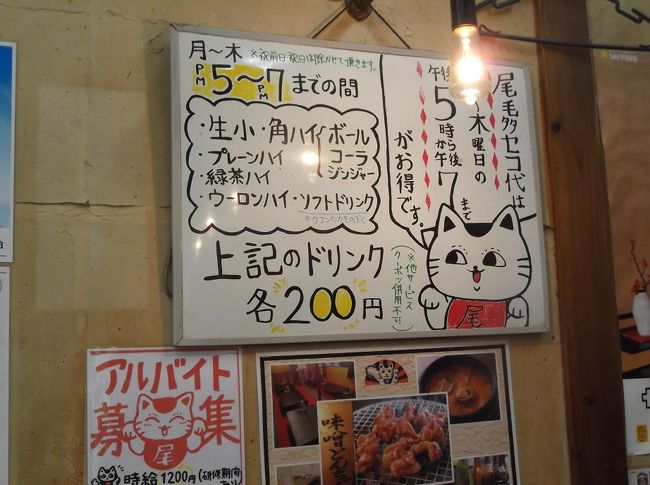 月～木 ※祝前日祝日は除かせて頂きます。
PM5～7PMまでの間
・生小・角ハイボール
コーラ
ジンジャー
・プレーンハイ
・緑茶ハイ
・ウーロンハイ・ソフトドリンク
※ウコンの力をのぞく
上記のドリンク
各200円
(※他サービス
クーポン併用不可)
尾毛多セコ代は
月～木曜日の
午後5時から午後7まで
がお得です。
尾
アルバイト
募集
尾
時給1200円(研修期間
味噌とんち
SAPPORO